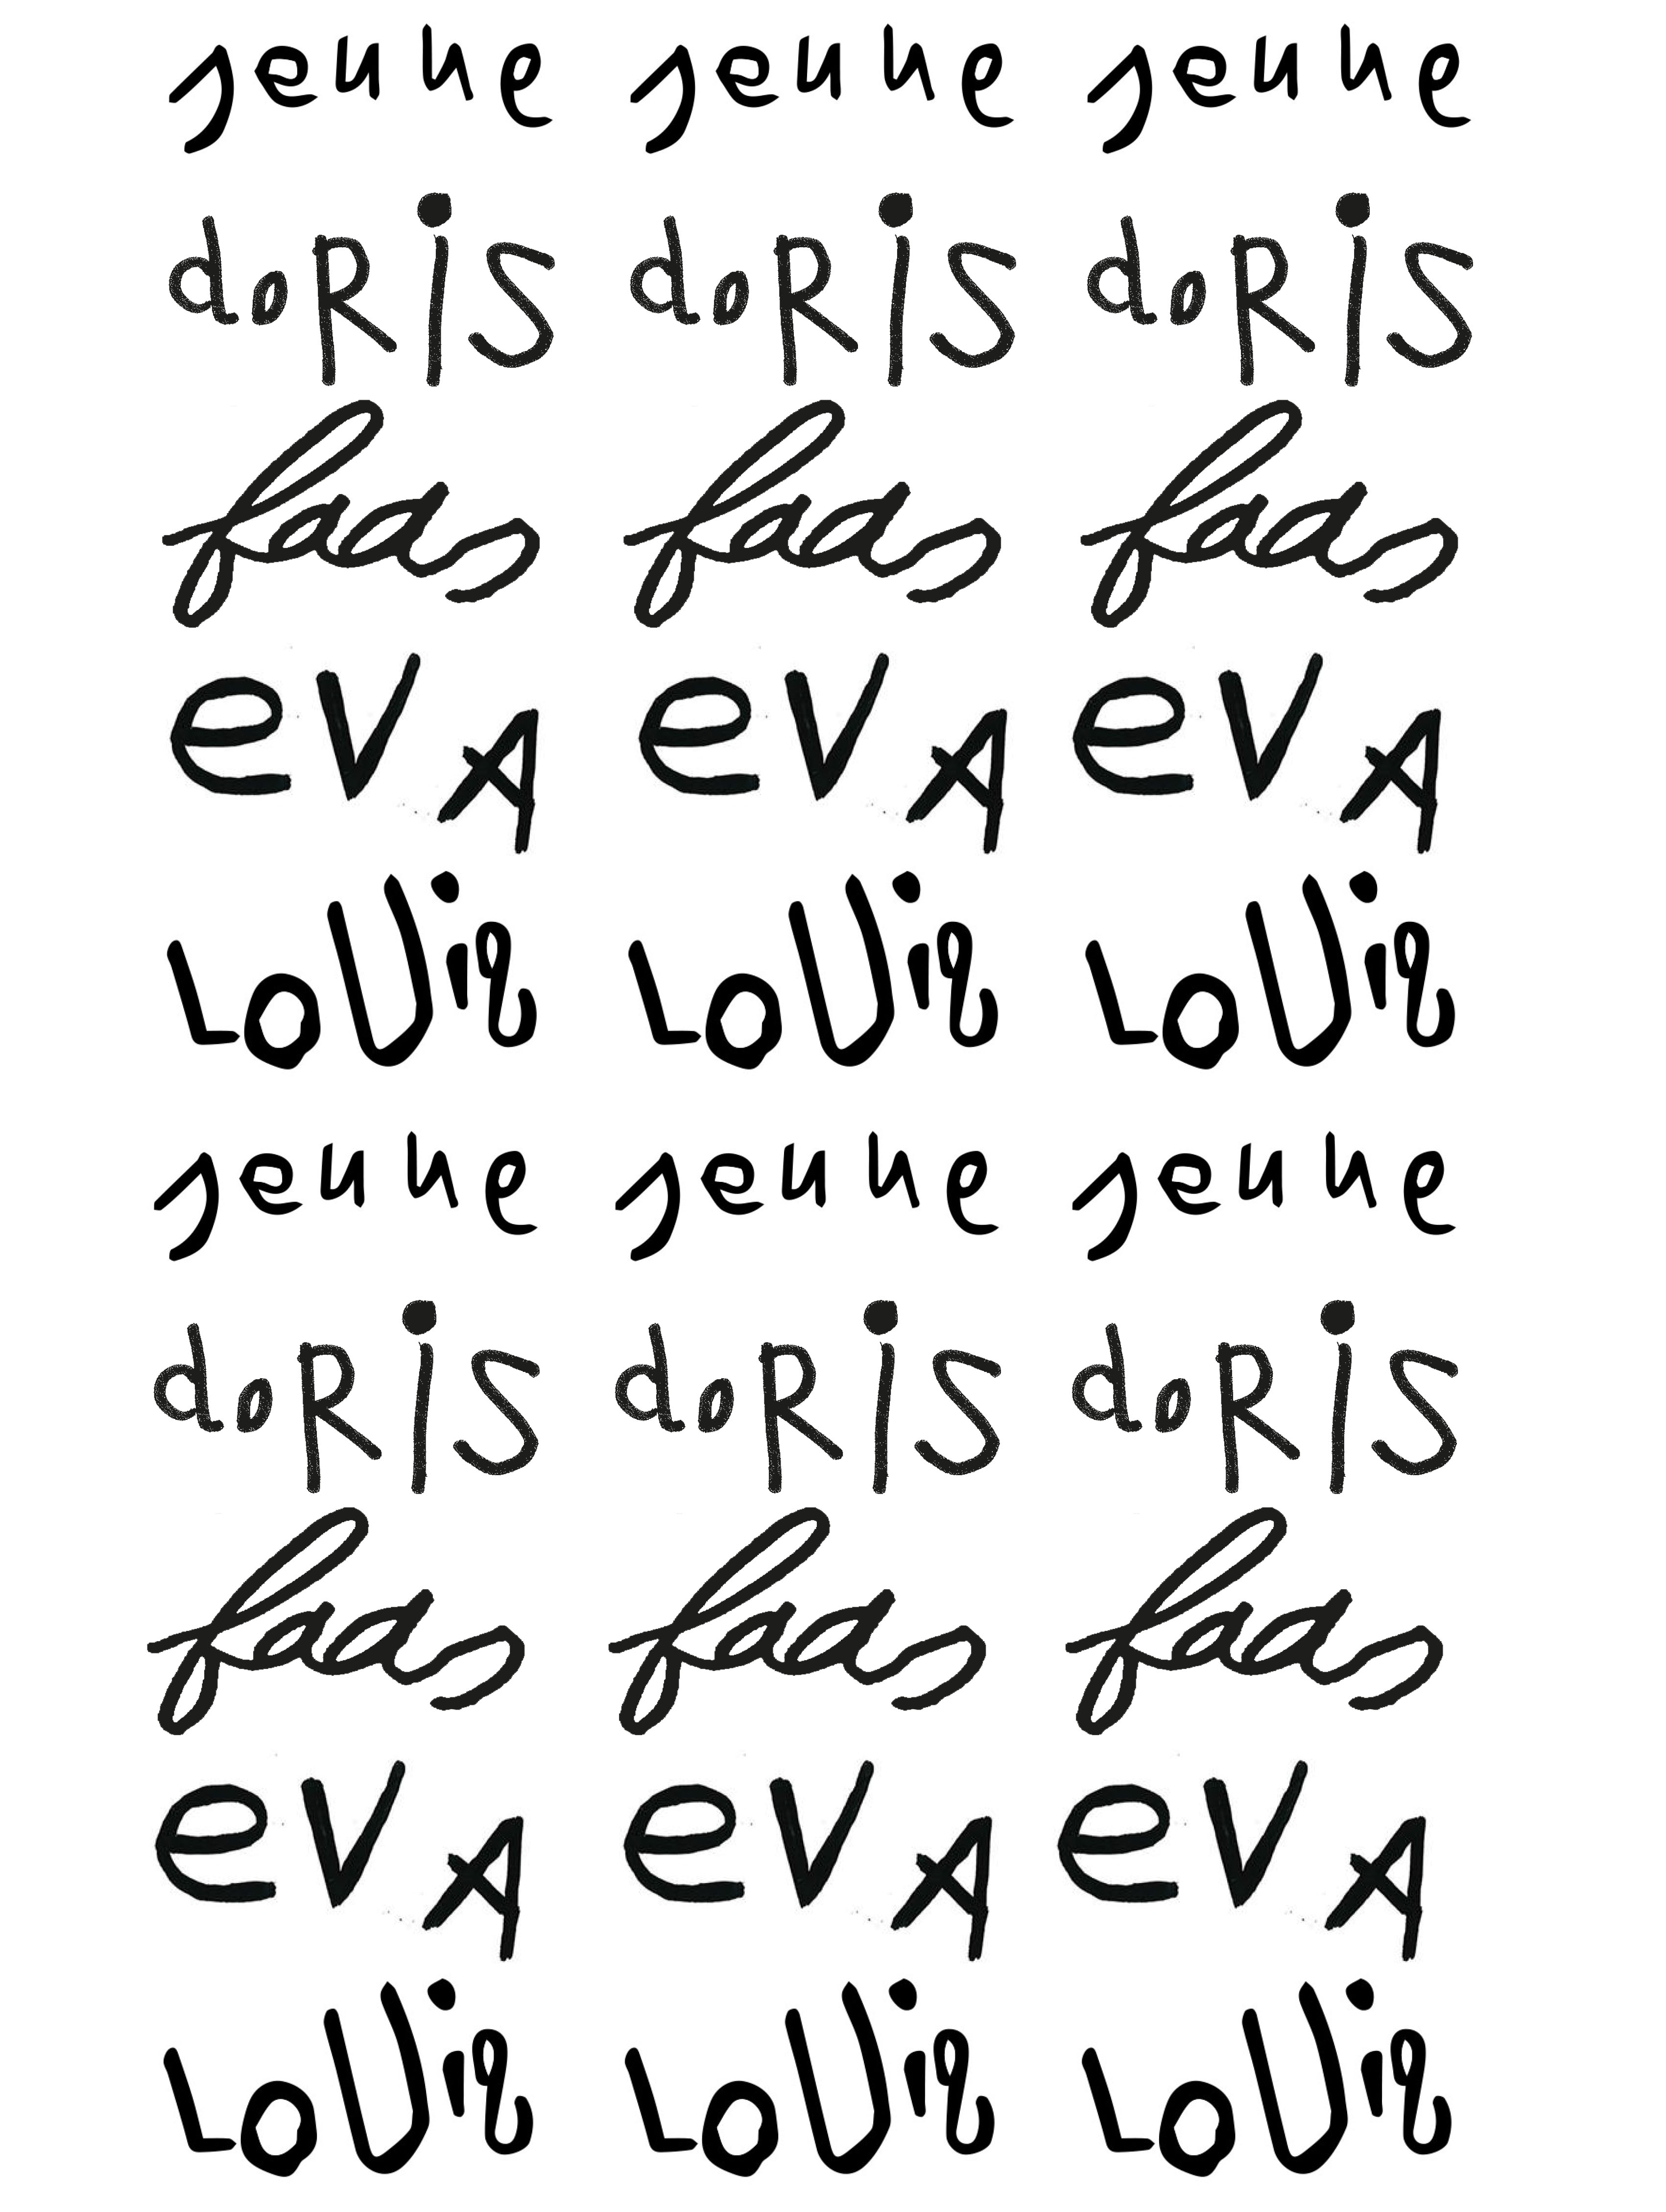 jeune jeune jeune
doRiS doRiS doRiS
faas faas faas
eVA eVA eVA
LoUis LoUis LoUis
jeune jeune jeune
doRiS doRiS doRiS
faas faas faas
eVA eVA eVA
LoUis LoUis LoUis